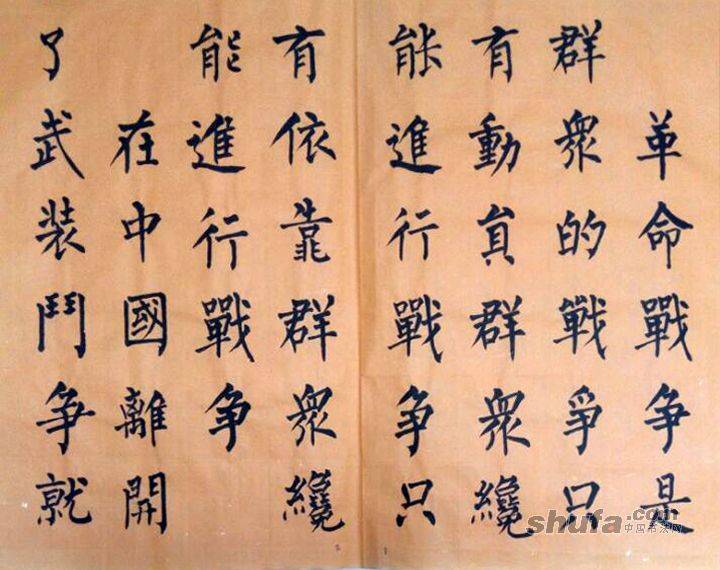 革命戰争是
群衆的戰爭只
有動貟群衆纔
能進行戰争只
有依靠群衆纔
能進行戰争
在中國離開
了武装鬥争就
shufa.com
中国书法网